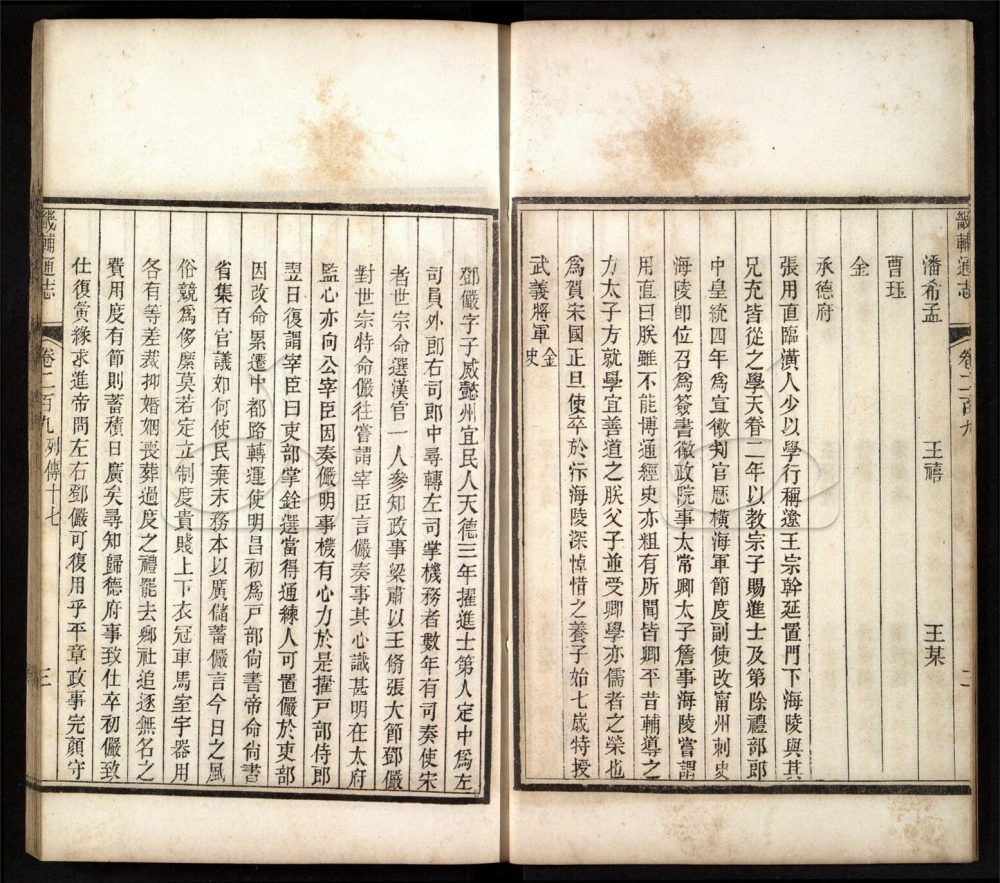 畿輔通志
卷二百九
二
潘希孟 王禧 王某
曹珏
金
承德府
張用直臨潢人少以學行稱遼王宗幹延置門下海陵與其
兄充皆從之學天眷二年以教宗子賜進士及第除禮部郎
中皇統四年爲宣徽判官歷橫海軍節度副使改甯州刺史
海陵卽位召爲簽書徽政院事太常卿太子詹事海陵嘗謂
用直曰朕雖不能博通經史亦粗有所聞皆卿平昔輔導之
力太子方就學宜善道之朕父子並受卿學亦儒者之榮也
爲賀宋國正旦使卒於汴海陵深悼惜之養子始七歲特授
武義將軍金史
鄧儼字子威懿州宜民人天德三年擢進士第人定中爲左
司員外郎右司郎中尋轉左司掌機務者數年有司奏使宋
者世宗命選漢官一人參知政事梁肅以王脩張大節鄧儼
對世宗特命儼往嘗謂宰臣言儼奏事其心識甚明在太府
監心亦向公宰臣因奏儼明事機有心力於是擢戸部侍郎
翌日復謂宰臣曰吏部掌銓選當得通練人可置儼於吏部
因改命累遷中都路轉運使明昌初爲戸部尙書帝命尙書
省集百官議如何使民棄末務本以廣儲蓄儼言今日之風
俗競爲侈靡莫若定立制度貴賤上下衣冠車馬室宇器用
各有等差裁抑婚姻喪葬過度之禮罷去鄉社追逐無名之
費用度有節則蓄積日廣矣尋知歸德府事致仕卒初儼致
仕復夤緣求進帝問左右鄧儼可復用乎平章政事完顏守
畿輔通志
卷二百九 列傳十七
三